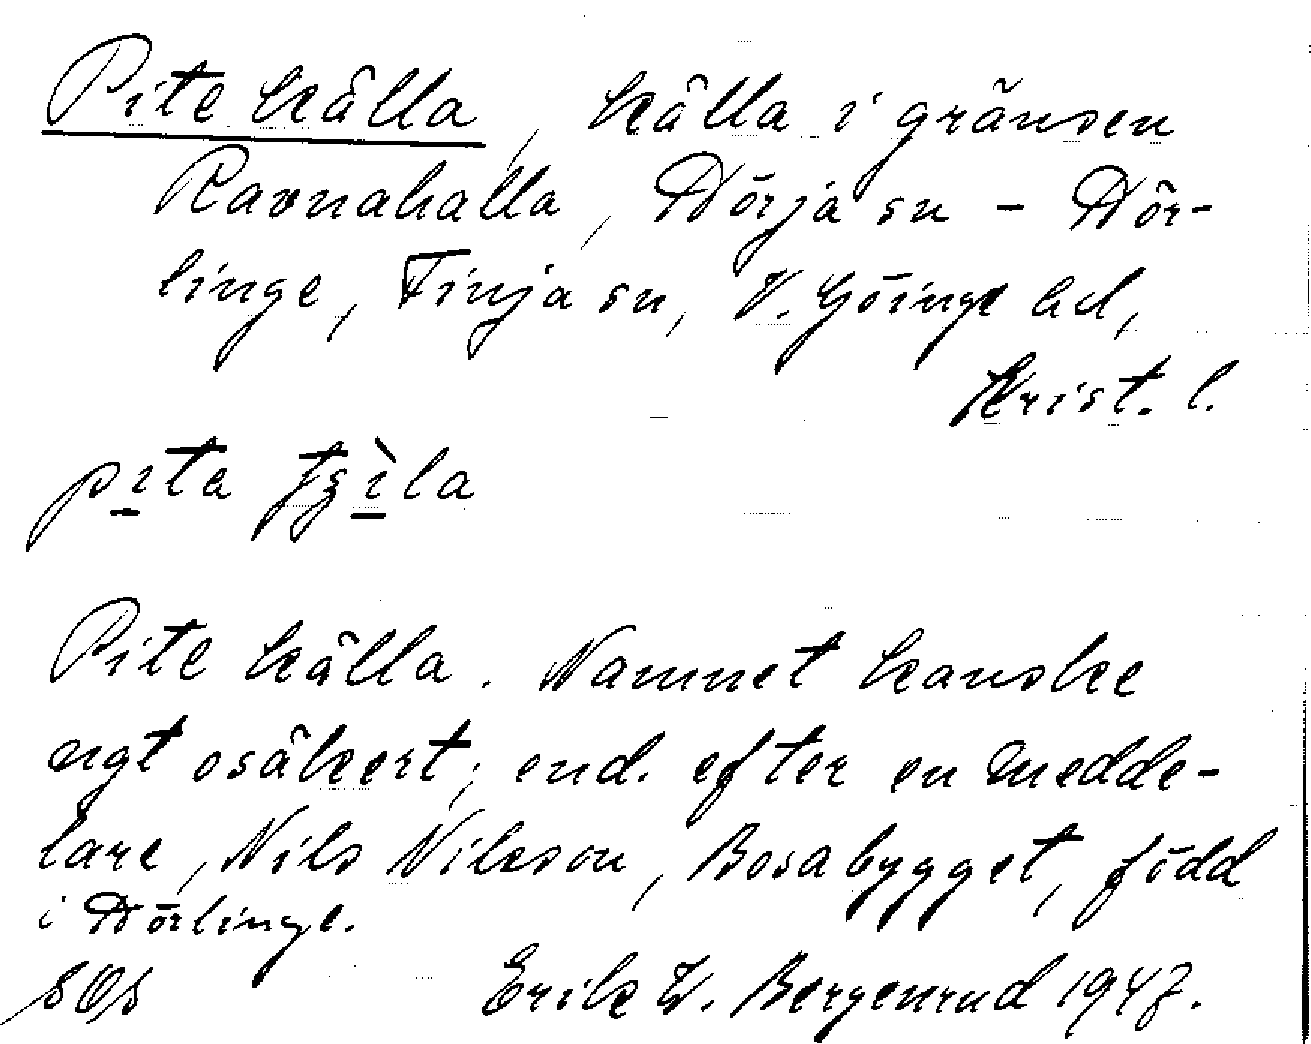 Pite källa, källa i gränsen
Ravnahalla, Nörja sn - Dör-
linge, Finja sn, V. Göinge hd,
Krist. l.
pita
Pite källa. Namnet kanske
ngt osäkert; end. efter en medde-
lare, Nils Nilsson, Bosabygget, född
i Dörlinge.
SOS Erik W. Bergenrud 1947.